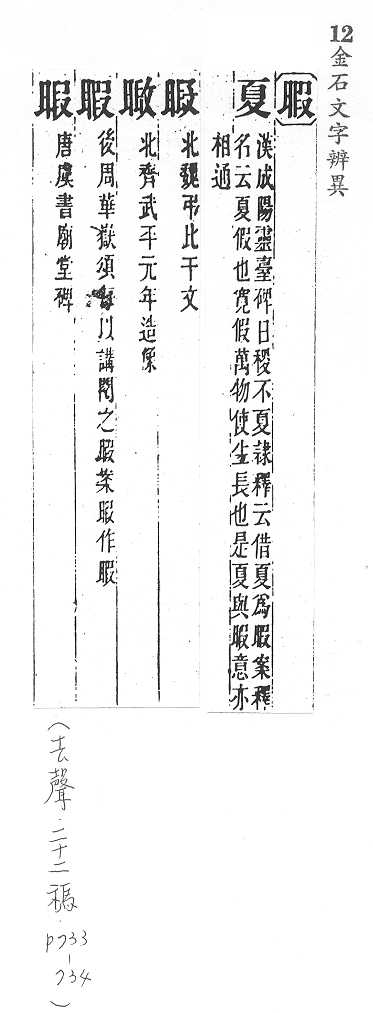 12金石文字辨異
暇
夏
漢成陽靈臺碑日稷不夏隷釋云借夏爲暇案釋
名云夏假也寬假萬物使生長也是夏與暇意亦
相通
北魏弔比干文
北齊武平元年造像
暇
後周華嶽頌 以講閱之暇案暇作暇
暇
唐虞書廟堂碑
(去聲.二十二禡.p733-734)